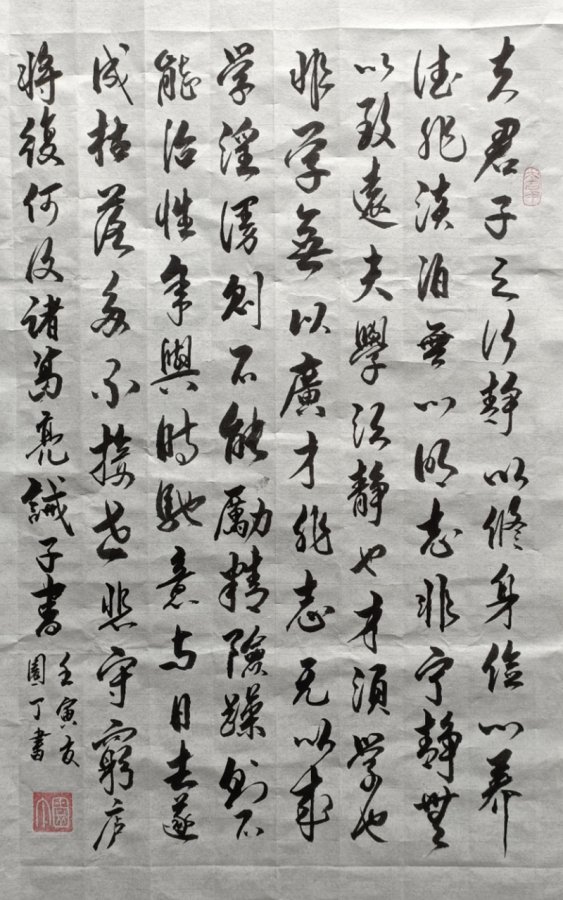 夫君子之行静以修身俭以养
德非淡泊無以明志非宁静無
以致遠夫學须静也才須學也
非学無以廣才非志无以成
学淫漫则不能勵精險躁则不
能治性年與時馳意与日去遂
成枯落多不接世悲守窮庐
将復何及诸葛亮誡子書
壬寅
園丁書